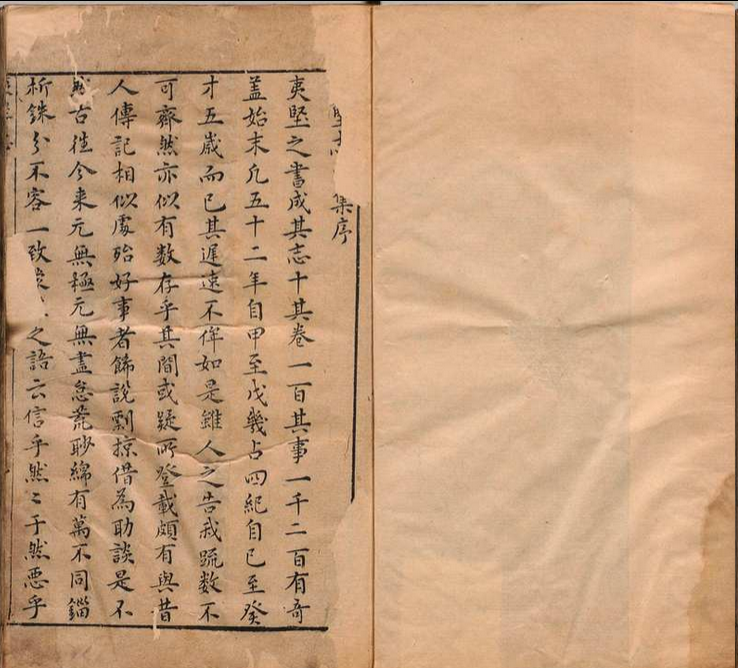 堅志 集序
夷堅之書成其志十其卷一百其事一千二百有奇
蓋始末凡五十二年自甲至戊幾占四紀自己至癸
才五歲而已其遲遠不侔如是雖人之告我䟽数不
可齊然亦似有数存乎其間或疑所登載頗有與昔
人傳記相似處殆好事者餙說剽掠借為助談是不
然古徃今来元無極元無盡怠荒眇綿有萬不同錙
析銖分不容一致 之語云信乎然〻于然悪乎